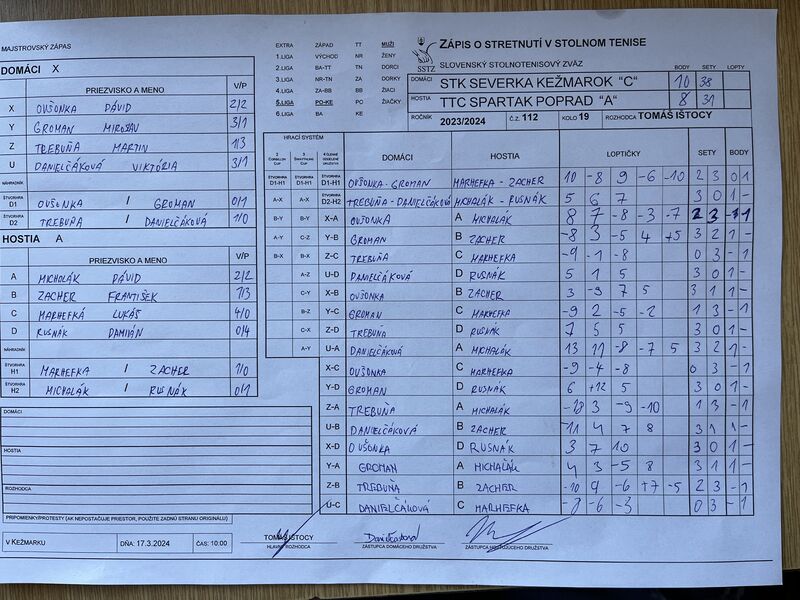 MAJSTROVSKÝ ZÁPAS
DOMÁCI X
PRIEZVISKO A MENO V/P
X OVŠONKA DÁVID 2/2
Y GROMAN MIROSLAV 3/1
Z TREBUŇA MARTIN 1/3
U DANIELČÁKOVÁ VIKTÓRIA 3/1
NÁHRADNÍK
ŠTVORHRA D1 OVŠONKA / GROMAN 0/1
ŠTVORHRA D2 TREBUŇA / DANIELČÁKOVÁ 1/0
HOSTIA A
PRIEZVISKO A MENO V/P
A MICHALÁK DÁVID 2/2
B ZACHER FRANTIŠEK 1/3
C MARHEFKA LUKÁŠ 4/0
D RUSNÁK DAMIÁN 0/4
NÁHRADNÍK
ŠTVORHRA H1 MARHEFKA / ZACHER 1/0
ŠTVORHRA H2 MICHALÁK / RUSNÁK 0/1
DOMÁCI:
HOSTIA:
ROZHODCA:
PRIPOMIENKY/PROTESTY (AK NEPOSTAČUJE PRIESTOR, POUŽITE ZADNÚ STRANU ORIGINÁLU)
V KEŽMARKU DŇA: 17.3.2024 ČAS: 10:00
EXTRA ZÁPAD TT MUŽI
1.LIGA VÝCHOD NR ŽENY
2.LIGA BA-TT TN DORCI
3.LIGA NR-TN ZA DORKY
4.LIGA ZA-BB BB ŽIACI
5.LIGA PO-KE PO ŽIAČKY
6.LIGA BA KE
SSTZ
ZÁPIS O STRETNUTÍ V STOLNOM TENISE
SLOVENSKÝ STOLNOTENISOVÝ ZVÄZ
BODY SETY LOPTY
DOMÁCI STK SEVERKA KEŽMAROK "C" 10 38
HOSTIA TTC SPARTAK POPRAD "A" 8 31
ROČNÍK 2023/2024 Č.Z. 112 KOLO 19 ROZHODCA TOMÁŠ IŠTOCY
HRACÍ SYSTÉM
DOMÁCI HOSTIA LOPTIČKY SETY BODY
ŠTVORHRA D1-H1 ŠTVORHRA D1-H1 ŠTVORHRA D1-H1 OVŠONKA - GROMAN MARHEFKA - ZACHER 10 -8 9 -6 -10 2 3 0 1
A-X A-X ŠTVORHRA D2-H2 TREBUŇA - DANIELČÁKOVÁ MICHALÁK - RUSNÁK 5 6 7 3 0 1 -
B-Y B-Y X-A OVŠONKA A MICHALÁK 8 7 -8 -3 -7 2 3 - 1
A-Y C-Z Y-B GROMAN B ZACHER -8 3 -5 4 +5 3 2 1 -
B-X B-X Z-C TREBUŇA C MARHEFKA -9 -1 -8 0 3 - 1
A-Z U-D DANIELČÁKOVÁ D RUSNÁK 5 1 5 3 0 1 -
C-Y X-B OVŠONKA B ZACHER 3 -9 7 5 3 1 1 -
B-Z Y-C GROMAN C MARHEFKA -9 2 -5 -2 1 3 - 1
C-X Z-D TREBUŇA D RUSNÁK 7 5 5 3 0 1 -
A-Y U-A DANIELČÁKOVÁ A MICHALÁK 13 11 -8 -7 5 3 2 1 -
X-C OVŠONKA C MARHEFKA -9 -4 -8 0 3 - 1
Y-D GROMAN D RUSNÁK 6 +12 5 3 0 1 -
Z-A TREBUŇA A MICHALÁK -10 3 -9 -10 1 3 - 1
U-B DANIELČÁKOVÁ B ZACHER -11 4 7 8 3 1 1 -
X-D OVŠONKA D RUSNÁK 3 7 10 3 0 1 -
Y-A GROMAN A MICHALÁK 4 3 -5 8 3 1 1 -
Z-B TREBUŇA B ZACHER -10 9 -6 +7 -5 2 3 - 1
U-C DANIELČÁKOVÁ C MARHEFKA -6 -3 0 3 - 1
TOMÁŠ IŠTOCY
HLAVNÝ ROZHODCA ZÁSTUPCA DOMÁCEHO DRUŽSTVA ZÁSTUPCA HOSŤUJÚCEHO DRUŽSTVA